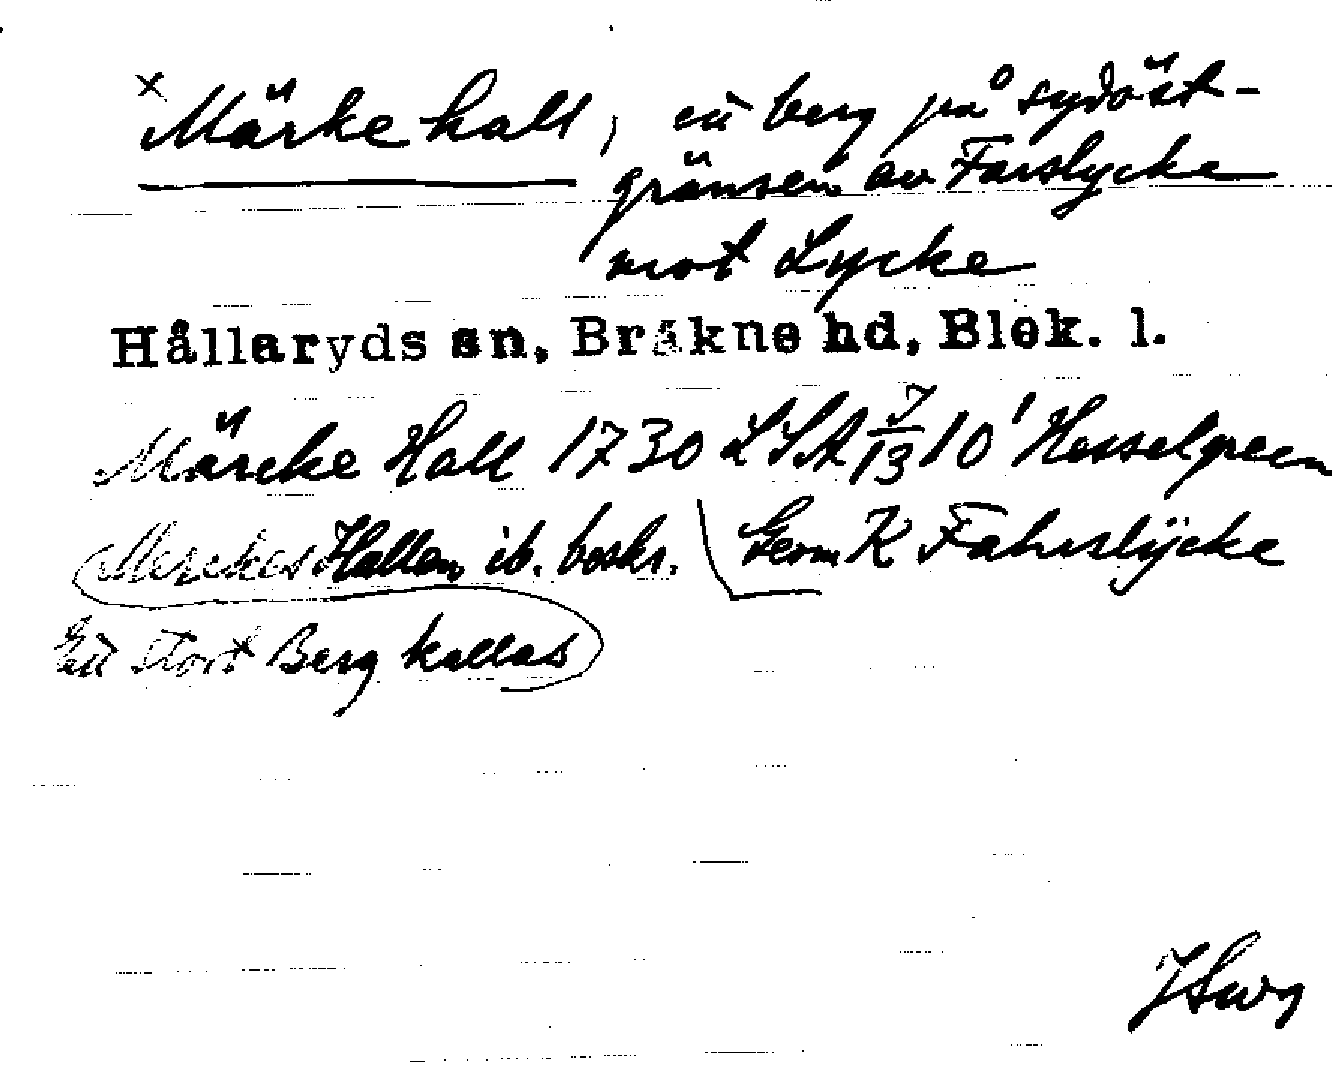 × Märke hall, ett berg på sydöst-
gränsen av Farslycke
mot Lycke
Hållaryds sn, Bräkne hd, Blek. l.
Märcke Hall 1730 LSA 7/13 10' Hesselgreen
Merckes Hallen ib. beskr. Geom K Fahrslÿcke
Ett stort Berg kallas
JSwg